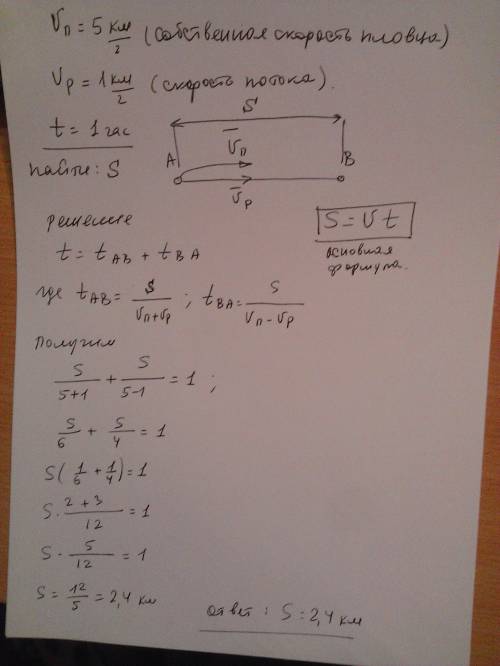 Vп = 5 км/г (собственная скорость пловца)
Vр = 1 км/г (скорость потока).
t = 1 час
S
V̅п
A B
V̅р
найти: S
решение
S = Vt
основная формула.
t = tAB + tBA
где tAB = S/(Vп+Vр) ; tBA = S/(Vп-Vр)
Получим
S/(5+1) + S/(5-1) = 1 ;
S/6 + S/4 = 1
S(1/6 + 1/4) = 1
S · (2+3)/12 = 1
S · 5/12 = 1
S = 12/5 = 2,4 км
ответ : S = 2,4 км